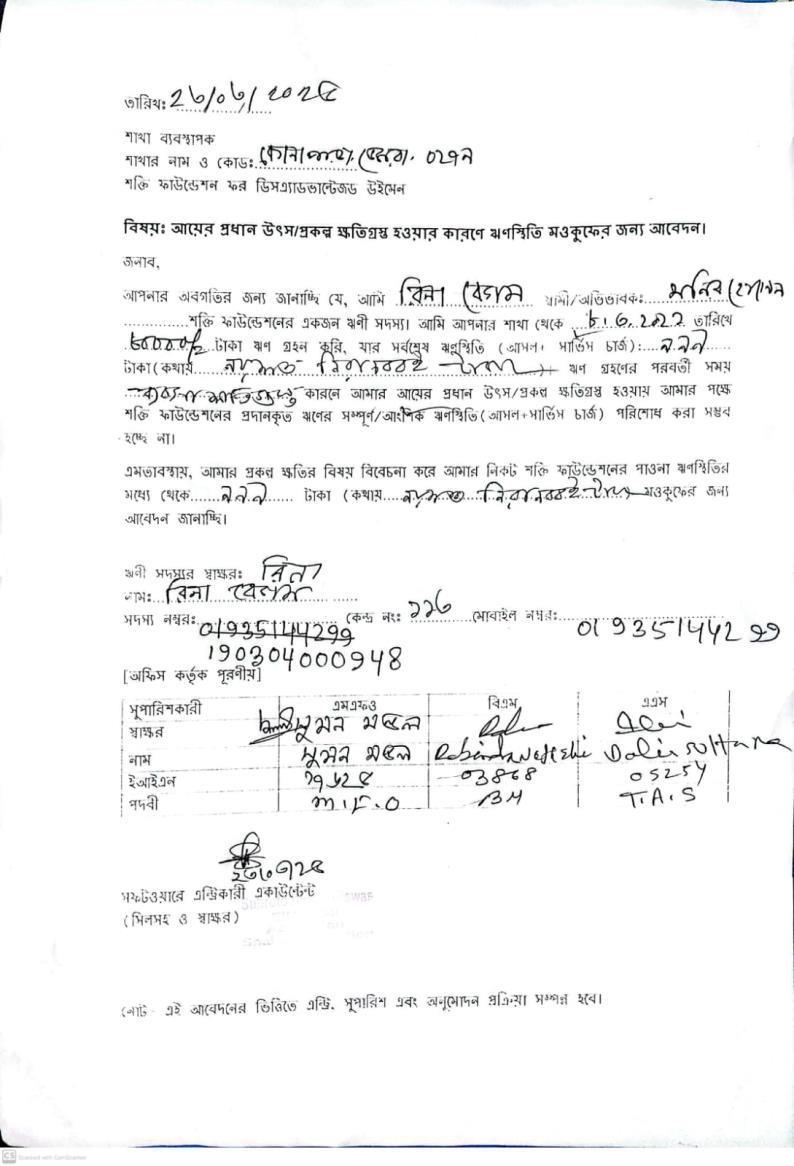 তারিখঃ 26/06/2025
শাখা ব্যবস্থাপক
শাখার নাম ও কোডঃ 0297
শক্তি ফাউন্ডেশন ফর ডিসএ্যাডভান্টেজড উইমেন
বিষয়ঃ আয়ের প্রধান উৎস/প্রকল্প ক্ষতিগ্রস্থ হওয়ার কারণে ঋণস্থিতি মওকুফের জন্য আবেদন।
জনাব,
আপনার অবগতির জন্য জানাচ্ছি যে, আমি রিনা বেগম স্বামী/অভিভাবকঃ মনির হোসেন
শক্তি ফাউন্ডেশনের একজন ঋণী সদস্য। আমি আপনার শাখা থেকে তারিখে
টাকা ঋণ গ্রহন করি, যার সর্বশেষ ঋণস্থিতি (আসল+ সার্ভিস চার্জ): ৯৯৯
টাকা(কথায় নয়শত নিরানব্বই টাকা) ঋণ গ্রহণের পরবর্তী সময়
কারনে আমার আয়ের প্রধান উৎস/প্রকল্প ক্ষতিগ্রস্থ হওয়ায় আমার পক্ষে
শক্তি ফাউন্ডেশনের প্রদানকৃত ঋণের সম্পূর্ণ/আংশিক ঋণস্থিতি(আসল+সার্ভিস চার্জ) পরিশোধ করা সম্ভব
হচ্ছে না।
এমতাবস্থায়, আমার প্রকল্প ক্ষতির বিষয় বিবেচনা করে আমার নিকট শক্তি ফাউন্ডেশনের পাওনা ঋণস্থিতির
মধ্যে থেকে ৯৯৯ টাকা (কথায় নয়শত নিরানব্বই টাকা মওকুফের জন্য
আবেদন জানাচ্ছি।
ঋণী সদস্যর স্বাক্ষরঃ রিনা
নামঃ রিনা বেগম
সদস্য নম্বরঃ 01935144299 কেন্দ্র নংঃ ১১৬ মোবাইল নম্বরঃ 01935144299
190304000948
[অফিস কর্তৃক পূরণীয়]
সুপারিশকারী এমএফও বিএম এএম
স্বাক্ষর সুমন মন্ডল
নাম সুমন মন্ডল Dolie Sultana
ইআইএন 03868 05254
পদবী M.F.O BM T.A.S
সফটওয়ারে এন্ট্রিকারী একাউন্টেন্ট
(সিলসহ ও স্বাক্ষর)
নোট- এই আবেদনের ভিত্তিতে এন্ট্রি, সুপারিশ এবং অনুমোদন প্রক্রিয়া সম্পন্ন হবে।
CS Scanned with CamScanner